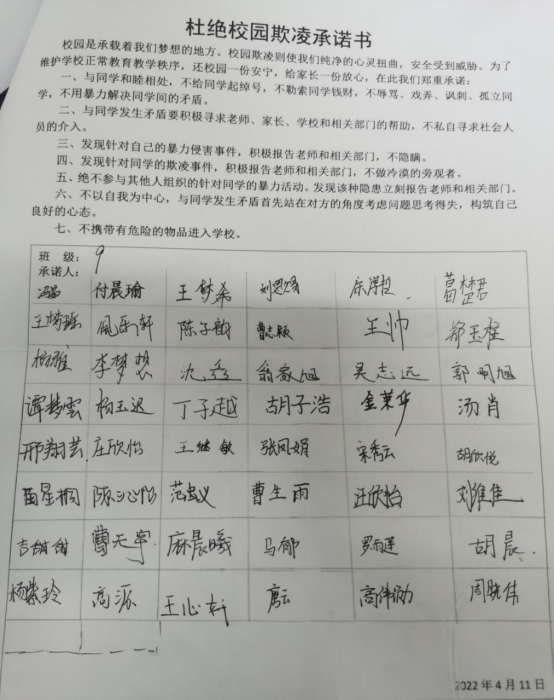 杜绝校园欺凌承诺书
校园是承载着我们梦想的地方。校园欺凌则使我们纯净的心灵扭曲，安全受到威胁。为了
维护学校正常教育教学秩序，还校园一份安宁，给家长一份放心，在此我们郑重承诺：
一、与同学和睦相处，不给同学起绰号，不勒索同学钱财，不辱骂、戏弄、讽刺、孤立同
学，不用暴力解决同学间的矛盾。
二、与同学发生矛盾要积极寻求老师、家长、学校和相关部门的帮助，不私自寻求社会人
员的介入。
三、发现针对自己的暴力侵害事件，积极报告老师和相关部门，不隐瞒。
四、发现针对同学的欺凌事件，积极报告老师和相关部门，不做冷漠的旁观者。
五、绝不参与其他人组织的针对同学的暴力活动。发现该种隐患立刻报告老师和相关部门。
六、不以自我为中心，与同学发生矛盾首先站在对方的角度考虑问题思考得失，构筑自己
良好的心态。
七、不携带有危险的物品进入学校。
班 级：9
承诺人：
付晨瑜 王梦希
王梦瑶 陈子韵 曹志颖 王帅 郑玉栓
杨雅 李梦想 翁家旭 吴志远 郭明旭
谭梦雲 杨玉迟 丁子越 胡子浩 金荣华 汤肖
邢翔芸 庄欣怡 王继敏 张凤娟 宋秀云 胡欣悦
苗星桐 陈沁怡 范忠义 曹生雨 汪欣怡 刘维佳
吉甜甜 曹天宇 麻晨曦 马郁 罗雨莲 胡晨
杨紫玲 高源 王心轩 唐云 高伟勋 周晓伟
2022年4月11日